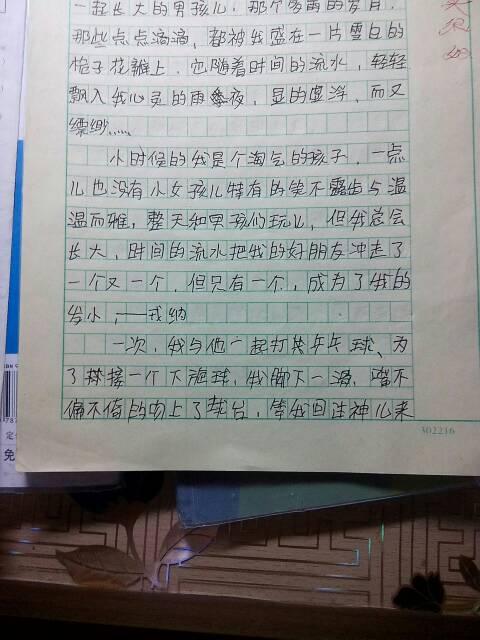 一起长大的男孩儿，那个多雨的岁月，
那些点点滴滴，都被我盛在一片雪白的
栀子花瓣上，它随着时间的流水，轻轻
飘入我心灵的雨夜，显的虚浮，而又
缥缈……
小时候的我是个淘气的孩子，一点
儿也没有小女孩儿特有的笑不露齿与温
温而雅，整天和男孩们玩儿，但我总会
长大，时间的流水把我的好朋友冲走了
一个又一个，但只有一个，成为了我的
发小，——戎纳
一次，我与他一起打乒乓球、为
了拼接一个下旋球，我脚下一滑，嘴不
偏不倚的吻上了球台，等我回过神儿来
302216
定
免